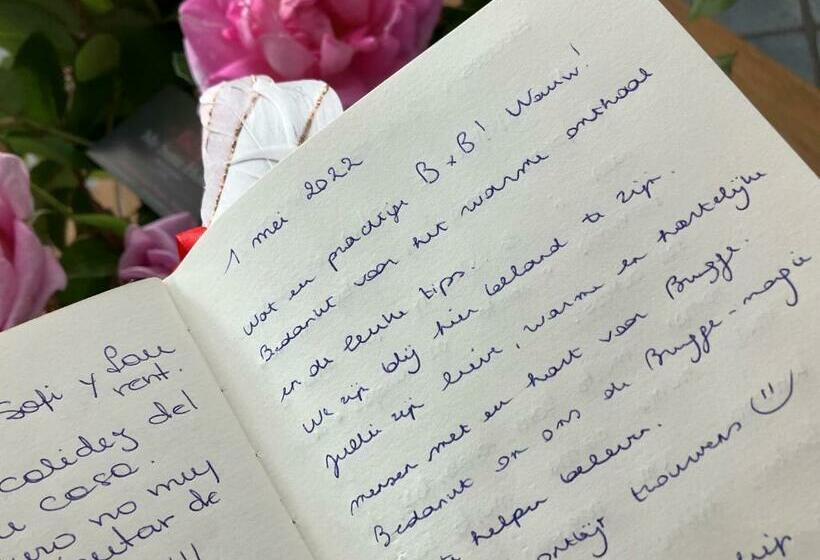 Sofi y Lau
rent.
calidez del
casa.
ero no muy
de
!!!
1 mei 2022
Wat een prachtige B&B! Wauw!
Bedankt voor het warme onthaal
en de leuke tips.
We zijn blij hier beland te zijn.
Jullie zijn lieve, warme en hartelijke
mensen met een hart voor Brugge.
Bedankt om ons de Brugge-magie
te helpen beleven.
ontbijt trouwens